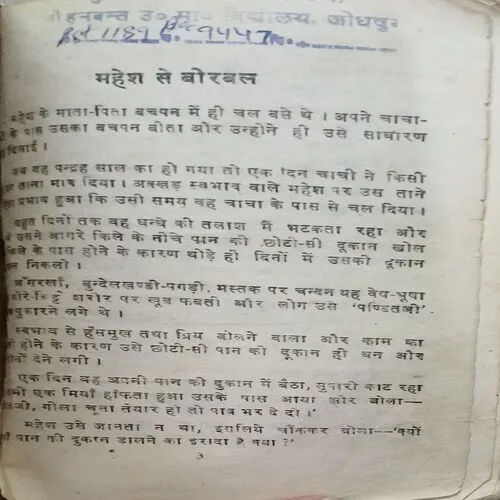 हनवन्त उ० मा० विद्यालय, जोधपुर
1189 9447
महेश से बीरबल
महेश के माता-पिता बचपन में ही चल बसे थे । अपने चाचा-
के पास उसका बचपन बीता और उन्होंने ही उसे साधारण
दिलाई ।
जब वह पन्द्रह साल का हो गया तो एक दिन चाची ने किसी
पर ताना मार दिया । अक्खड़ स्वभाव वाले महेश पर उस ताने
प्रभाव हुआ कि उसी समय वह चाचा के पास से चल दिया ।
बहुत दिनों तक वह धन्धे की तलाश में भटकता रहा और
उसने आगरे किले के नीचे पान की छोटी-सी दूकान खोल
किले के पास होने के कारण थोड़े ही दिनों में उसकी दूकान
चल निकली ।
अंगरखा, बुन्देलखण्डी-पगड़ी, मस्तक पर चन्दन यह वेष-भूषा
शरीर पर खूब फबती और लोग उसे 'पण्डितजी'
पुकारने लगे थे ।
स्वभाव से हँसमुख तथा प्रिय बोलने वाला और काम का
होने के कारण उसे छोटी-सी पान की दूकान ही धन और
देने लगी ।
एक दिन वह अपनी पान की दुकान में बैठा, सुपारी काट रहा
एक मियाँ हाँफता हुआ उसके पास आया और बोला—
गीला चूना तैयार हो तो पाव भर दे दो ।'
महेश उसे जानता न था, इसलिये चौंककर बोला—'क्यों
पान की दुकान डालने का इरादा है क्या ?'
3